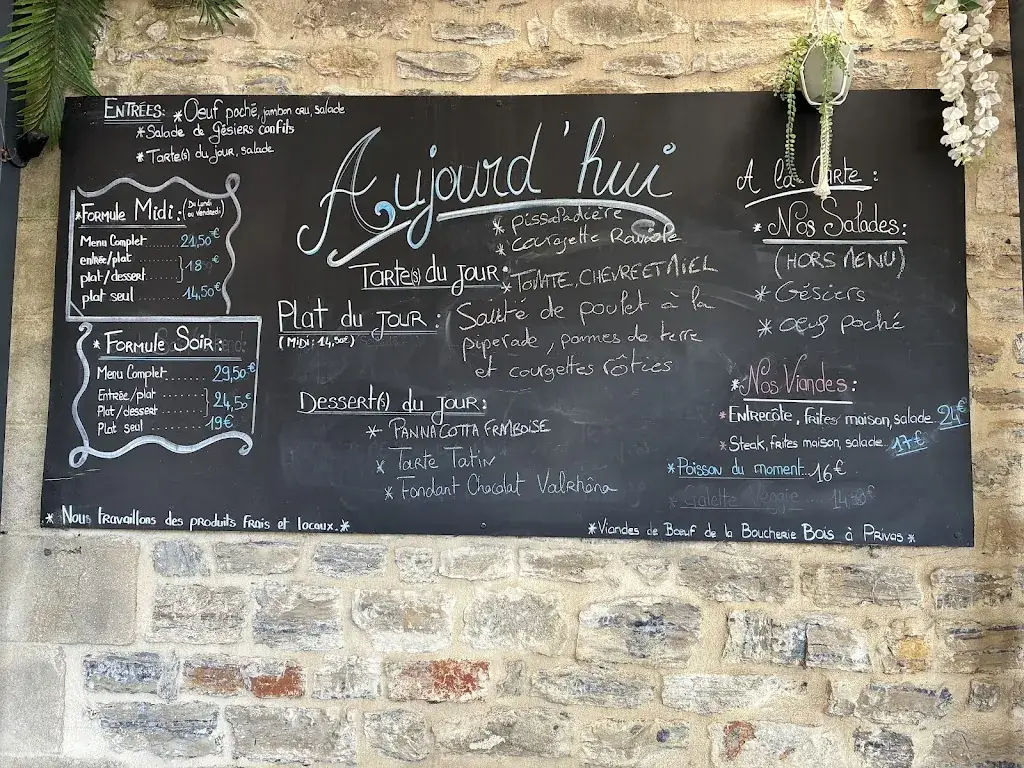 ENTRÉES: * Oeuf poché, jambon cru, salade
* Salade de Gésiers confits
* Tarte(s) du jour, salade
* FORMULE MIDI: (Du Lundi au Vendredi)
Menu Complet........ 21,50€
entrée/plat
plat/dessert........ } 18€
plat seul........ 14,50€
* FORMULE SOIR:
Menu Complet....... 29,50€
Entrée/plat.......
Plat/dessert....... } 24,50€
Plat seul....... 19€
Aujourd'hui
* pissaladière
* courgette Ravioles
TARTE(s) DU JOUR: * TOMATE, CHEVRE ET MIEL
Plat du JOUR: Sauté de poulet à la
(Midi: 14,50€) piperade, pommes de terre
et courgettes rôties
DESSERT(s) DU JOUR:
* PANNACOTTA FRAMBOISE
* Tarte Tatin
* Fondant Chocolat Valrhôna
A la Carte:
* Nos SALADES:
(HORS MENU)
* Gésiers
* Oeuf Poché
* Nos Viandes:
* ENTRECÔTE, frites maison, salade. 24€
* Steak, frites maison, salade... 17€
* Poisson du moment... 16€
* Galette Veggie... 14,50€
* Nous travaillons des produits frais et locaux. *
* Viandes de Boeuf de la Boucherie BOIS à Privas *